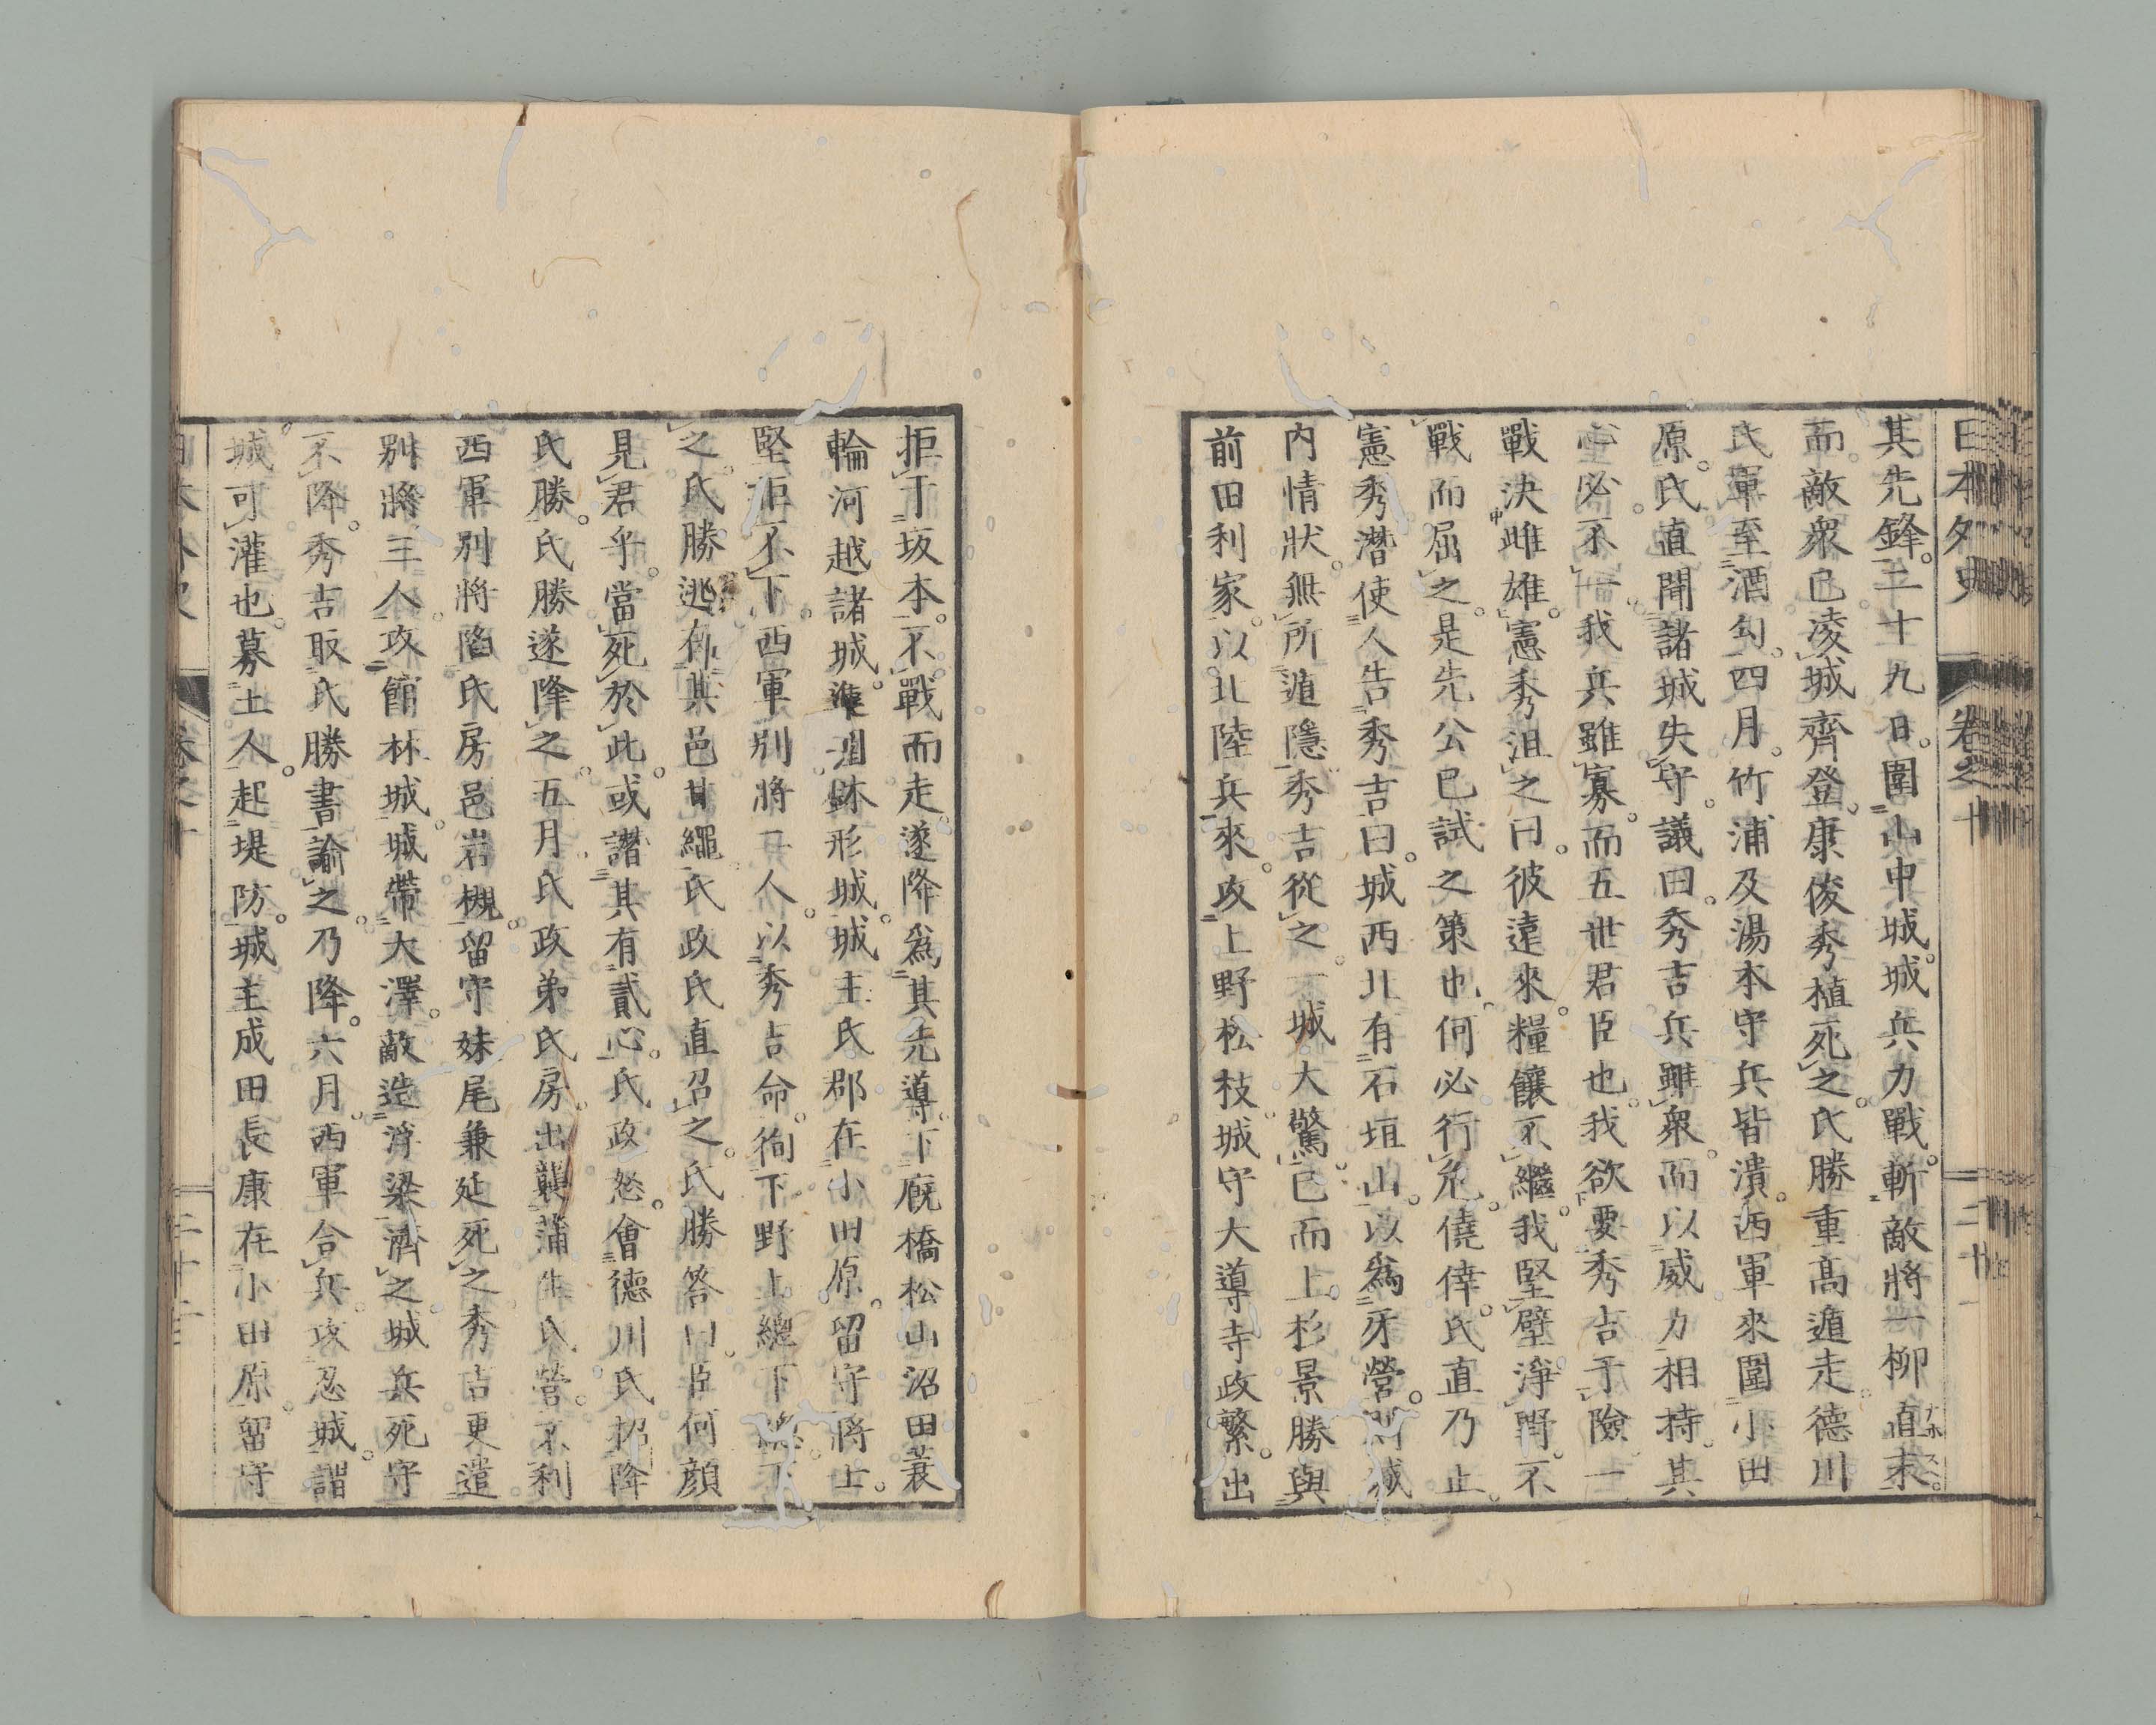 日本外史 卷之十 二十一
其先鋒。二十九日。圍山中城。城兵力戰。斬敵將一柳直末。
而敵衆已凌城齊登。康俊秀植死之。氏勝重高遁走。德川
氏軍至酒匂。四月。竹浦及湯本守兵皆潰。西軍來圍小田
原。氏直聞諸城失守。議曰。秀吉兵雖衆。而以威力相持。其
心必不一。我兵雖寡。而五世君臣也。我欲要秀吉于險。一
戰決雌雄。憲秀沮之曰。彼遠來。糧饟不繼。我堅壁淨野。不
戰而屈之。是先公已試之策也。何必行危僥倖。氏直乃止。
憲秀潛使人告秀吉曰。城西北有石垣山。以爲牙營。則城
内情狀。無所遁隱。秀吉從之。城大驚。已而上杉景勝與
前田利家。以北陸兵來。攻上野松枝城。守大導寺政繁。出
拒于坂本。不戰而走。遂降爲其先導。下廐橋松山沼田蓑
輪河越諸城。進迫鉢形城。城主氏郡在小田原。留守將士。
堅拒不下。西軍別將 人。以秀吉命。徇下野上總下總。下
之。氏勝逃在其邑甘繩。氏政氏直召之。氏勝答曰。臣何顔
見君乎。當死於此。或讃其有貳心。氏政怒。會德川氏招降
氏勝。氏勝遂降之。五月。氏政弟氏房。出襲蒲生氏營。不利
西軍別將陷氏房邑岩槻。留守妹尾兼延死之。秀吉更遣
別將三人。攻館林城。城帶大澤。敵造浮梁濟之。城兵死守
不降。秀吉取氏勝書諭之。乃降。六月。西軍合兵。攻忍城。謂
城可灌也。募土人。起堤防。城主成田長康在小田原。留守
日本外史 卷之十 二十二